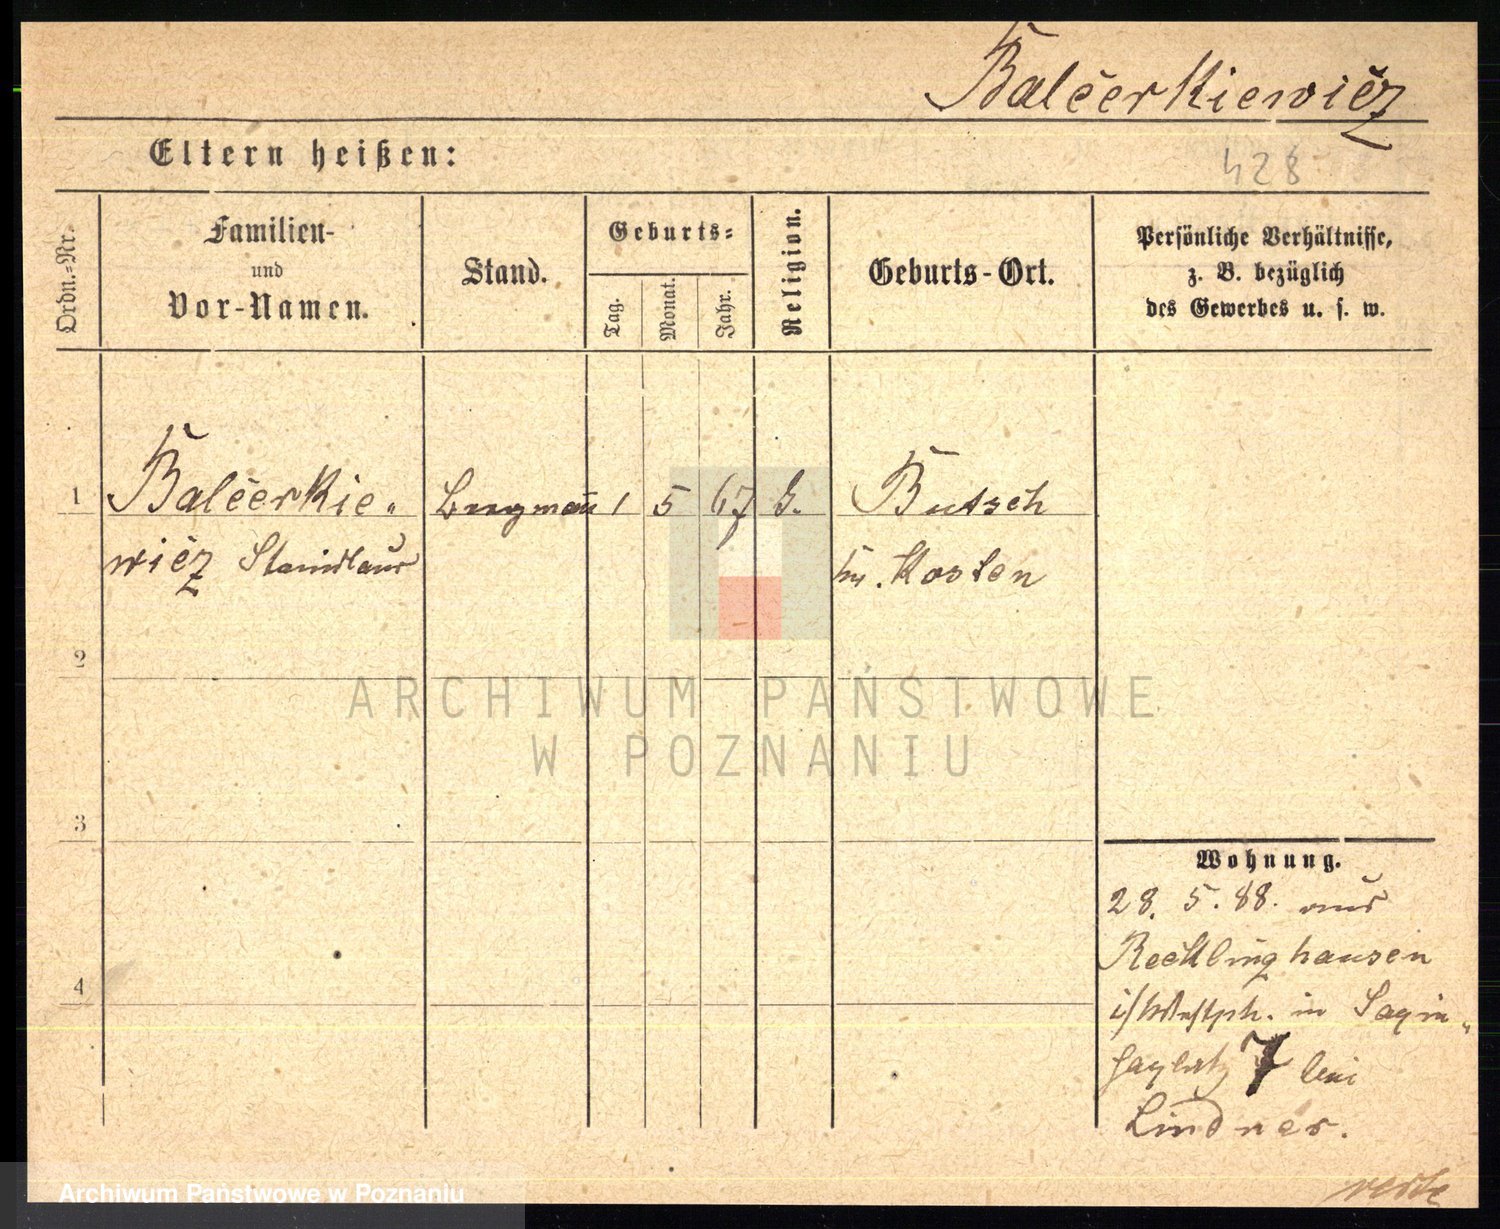 Balcerkiewicz
Eltern heißen:
428
Ordn.-Nr.
Familien-
und
Vor-Namen.
Stand.
Geburts-
Tag.
Monat.
Jahr.
Religion.
Geburts-Ort.
Persönliche Verhältnisse,
z. B. bezüglich
des Gewerbes u. s. w.
1 Balcerkie- Bergmann 1 5 67 Butsch
wicz Stanislaus Kr. Kosten
2
ARCHIWUM PAŃSTWOWE
W POZNANIU
3
Wohnung.
28. 5. 88. aus
Recklinghausen
i/Westph. in
4
7 bei
Lindner.
Archiwum Państwowe w Poznaniu
verte